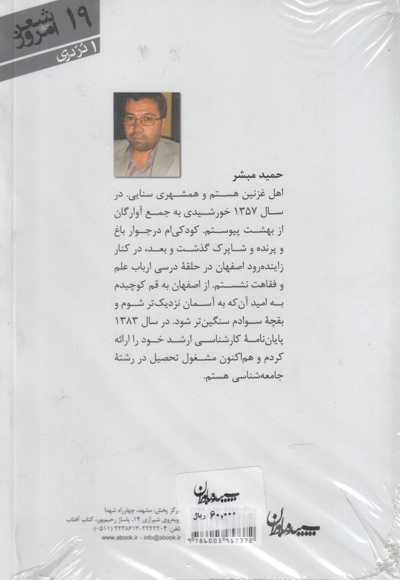 ۱۹
شعر
امروز
۱ دُر دری
حمید مبشر
اهل غزنین هستم و همشهری سنایی. در
سال ۱۳۵۷ خورشیدی به جمع آوارگان
از بهشت پیوستم. کودکی‌ام درجوار باغ
و پرنده و شاپرک گذشت و بعد، در کنار
زاینده‌رود اصفهان در حلقهٔ درسی ارباب علم
و فقاهت نشستم. از اصفهان به قم کوچیدم
به امید آن‌که به آسمان نزدیک‌تر شوم و
بقچهٔ سوادم سنگین‌تر شود. در سال ۱۳۸۳
پایان‌نامهٔ کارشناسی ارشد خود را ارائه
کردم و هم‌اکنون مشغول تحصیل در رشتهٔ
جامعه‌شناسی هستم.
سپیده‌باوران
سپیده‌باوران
۶۰,۰۰۰ ریال
مرکز پخش: مشهد، چهارراه شهدا
وبه‌روی شیرازی ۱۴، پاساژ رحیم‌پور، کتاب آفتاب
تلفن: ۲۲۲۲۲۰۴-۲۲۳۸۶۱۳ (۰۵۱۱)
www.abook.ir - info@abook.ir
9 786005 957372